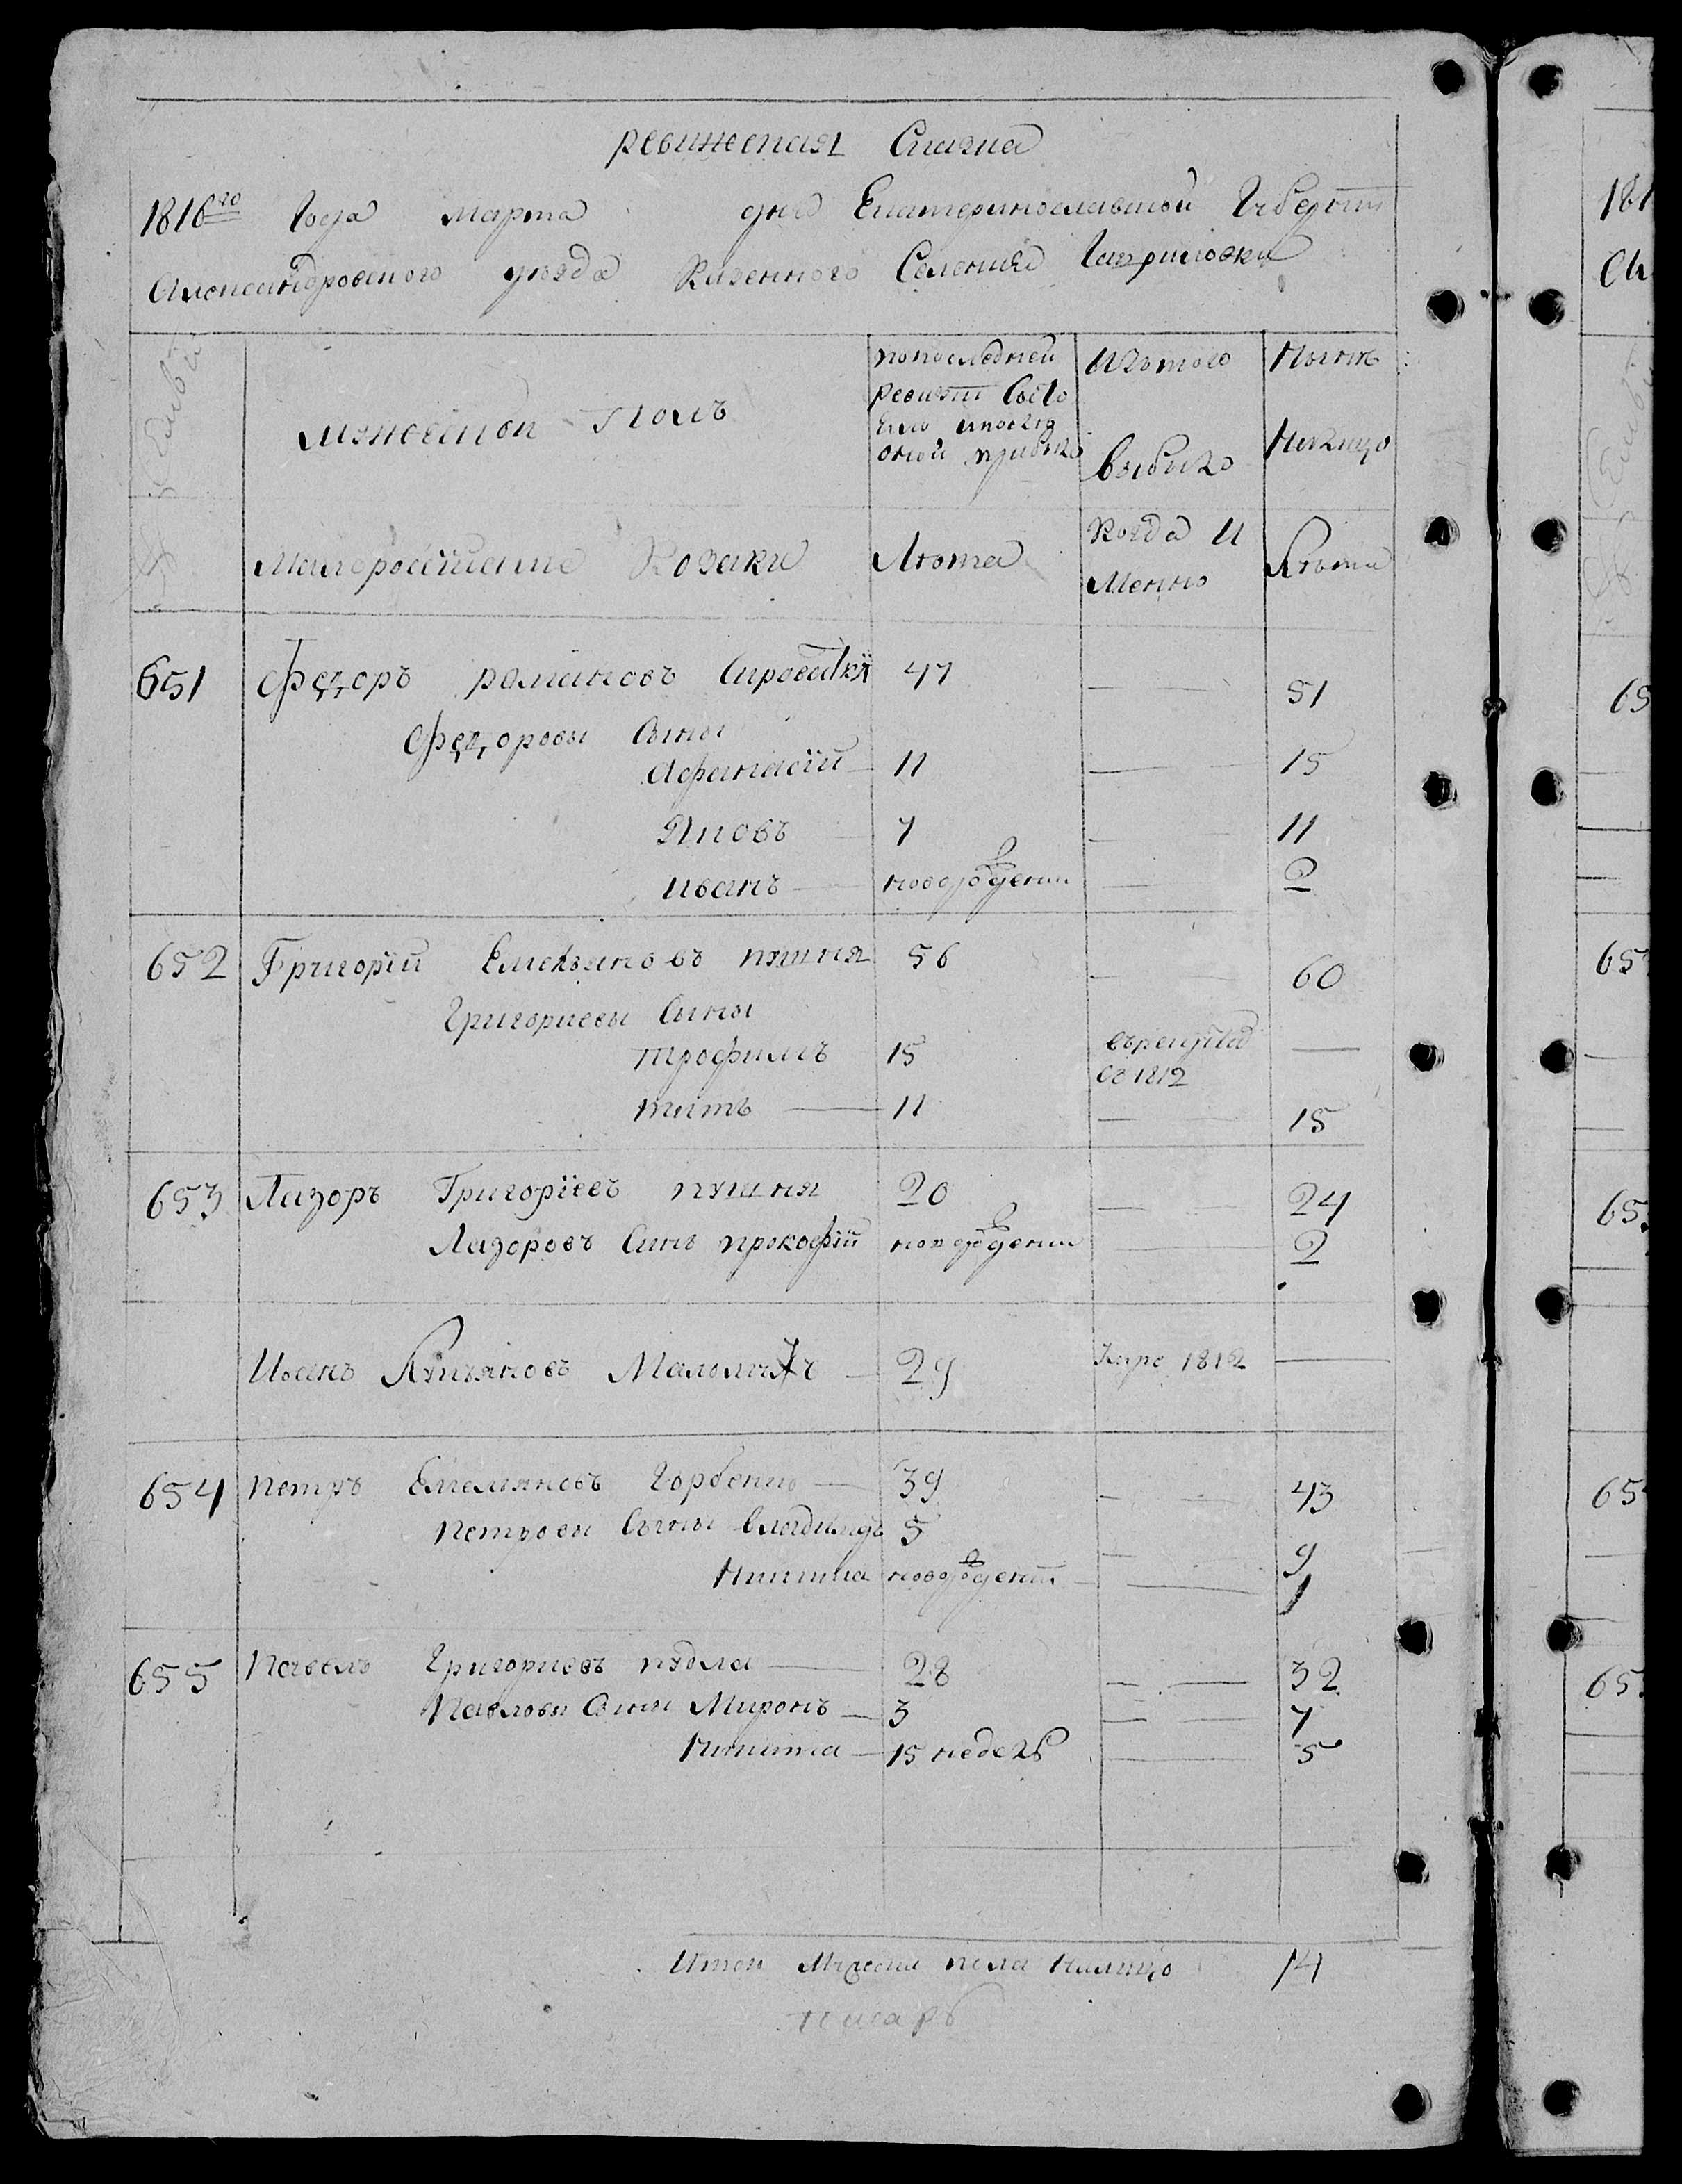 ревижская Сказка
1816го Года Марта дня Екатеринославской Губернии
Александровского уезда Казенного Селения Гавриловки
Семьи
Мужеский Полъ
попоследней ревизии Состояло ипосля оной прибыло
Изътого выбыло
Ныне Налицо
Малороссийские Козаки
Лѣта
Когда И Менно
Лѣта
651 Федоръ романовъ Сироватка 47 — 51
Федоровы Сыны
Афанасій 11 — 15
Яковъ 7 — 11
иванъ новорожденни — 2
652 Григорій Емельяновъ пушня 56 — 60
Григориевы Сыны
трофимъ 15 врекруты въ 1812 —
титъ — 11 — 15
653 Лазоръ Григоріевъ пушня 20 — 24
Лазоровъ Синъ прокофій новорожденни — 2
Иванъ Лукъяновъ 29 Умре 1812 —
654 петръ Емельяновъ Горбенко — 39 — 43
петрови Сыны владимиръ 5 — 9
Никита новорожденни — 1
655 павелъ Григориевъ пудла — 28 — 32
павлови Сыны Миронъ — 3 — 7
Никита — 15 неделъ — 5
Итого Мужеска пола налицо 14
писарь
181
651
652
653
654
655